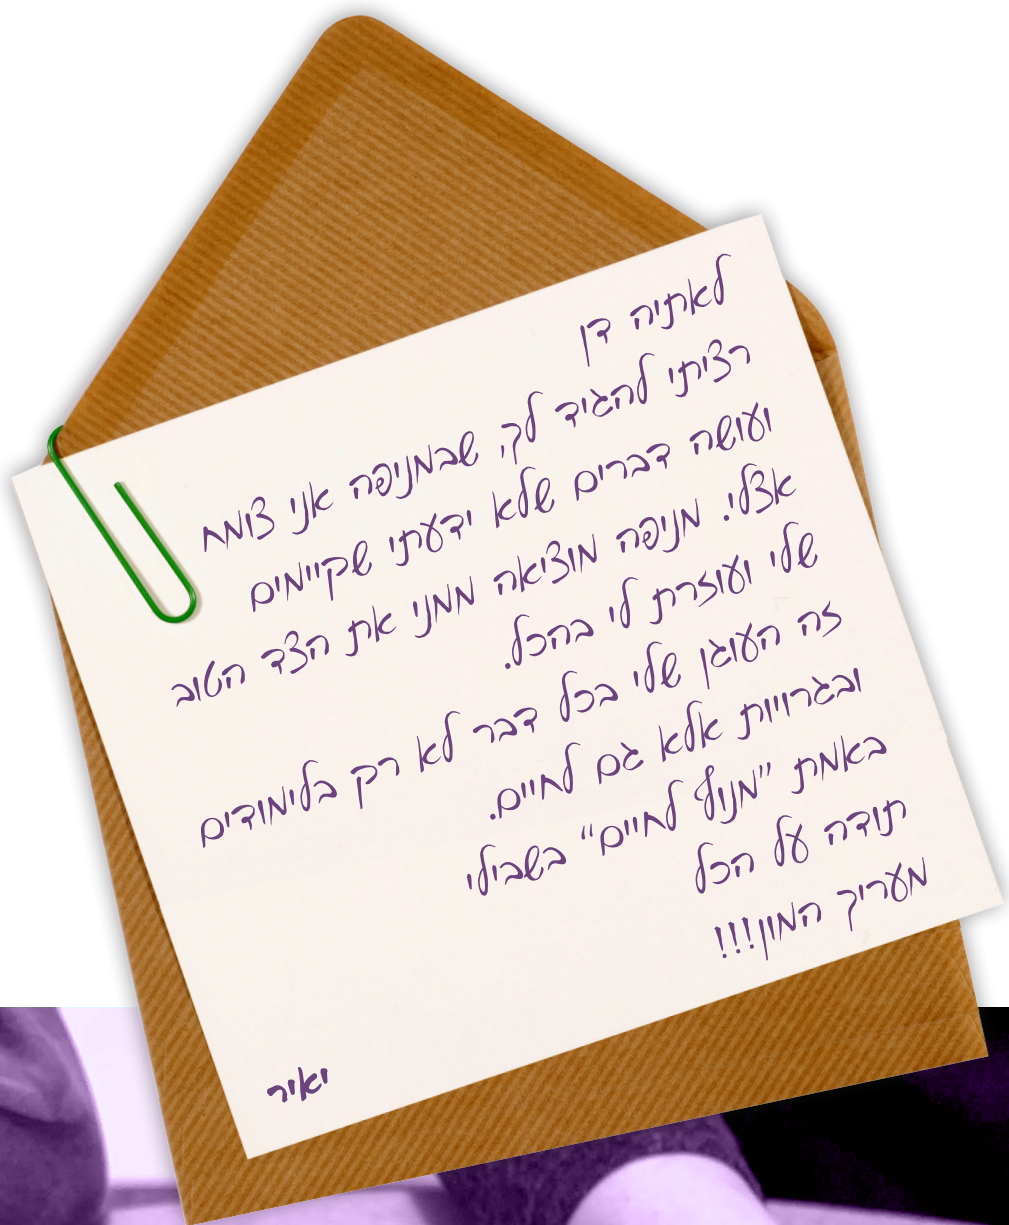 לאתיה דן
רציתי להגיד לך, שבמניפה אני צומח
ועושה דברים שלא ידעתי שקיימים
אצלי. מניפה מוציאה ממני את הצד הטוב
שלי ועוזרת לי בהכל.
זה העוגן שלי בכל דבר לא רק בלימודים
ובגרויות אלא גם לחיים.
באמת "מנוף לחיים" בשבילי
תודה על הכל
מעריך המון!!!
יאיר